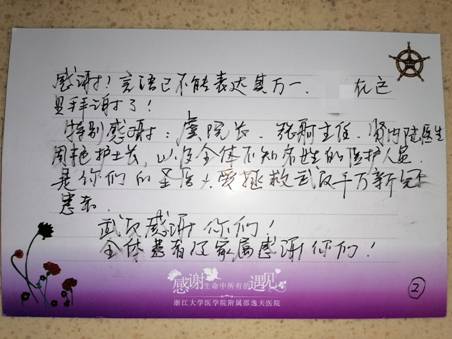 感谢！言语已不能表达其万一、在这
里拜谢了！
特别感谢：虞院长、张珂主任、
护士长，以及全体不知名姓的医护人员
是你们的圣医大爱拯救武汉千万新冠
患者
武汉感谢你们！
全体患者及家属感谢你们！
感谢生命中所有的遇见
浙江大学医学院附属邵逸夫医院
2